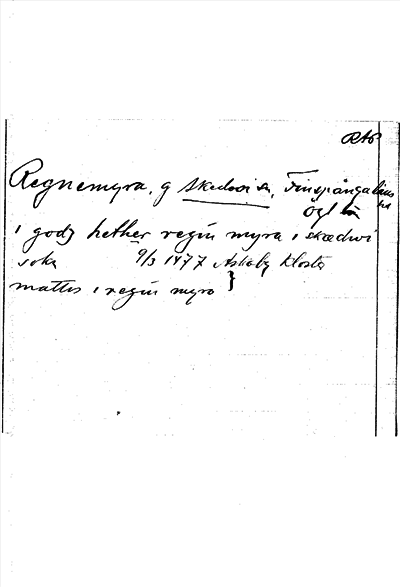 RAP
Regnemyra, g Skedvi sn, Finspångaläns
hd
Ögl
i godz hether regin myra i skædwi
sokn 9/3 1477 Askaby kloster
mattis i regin myro }